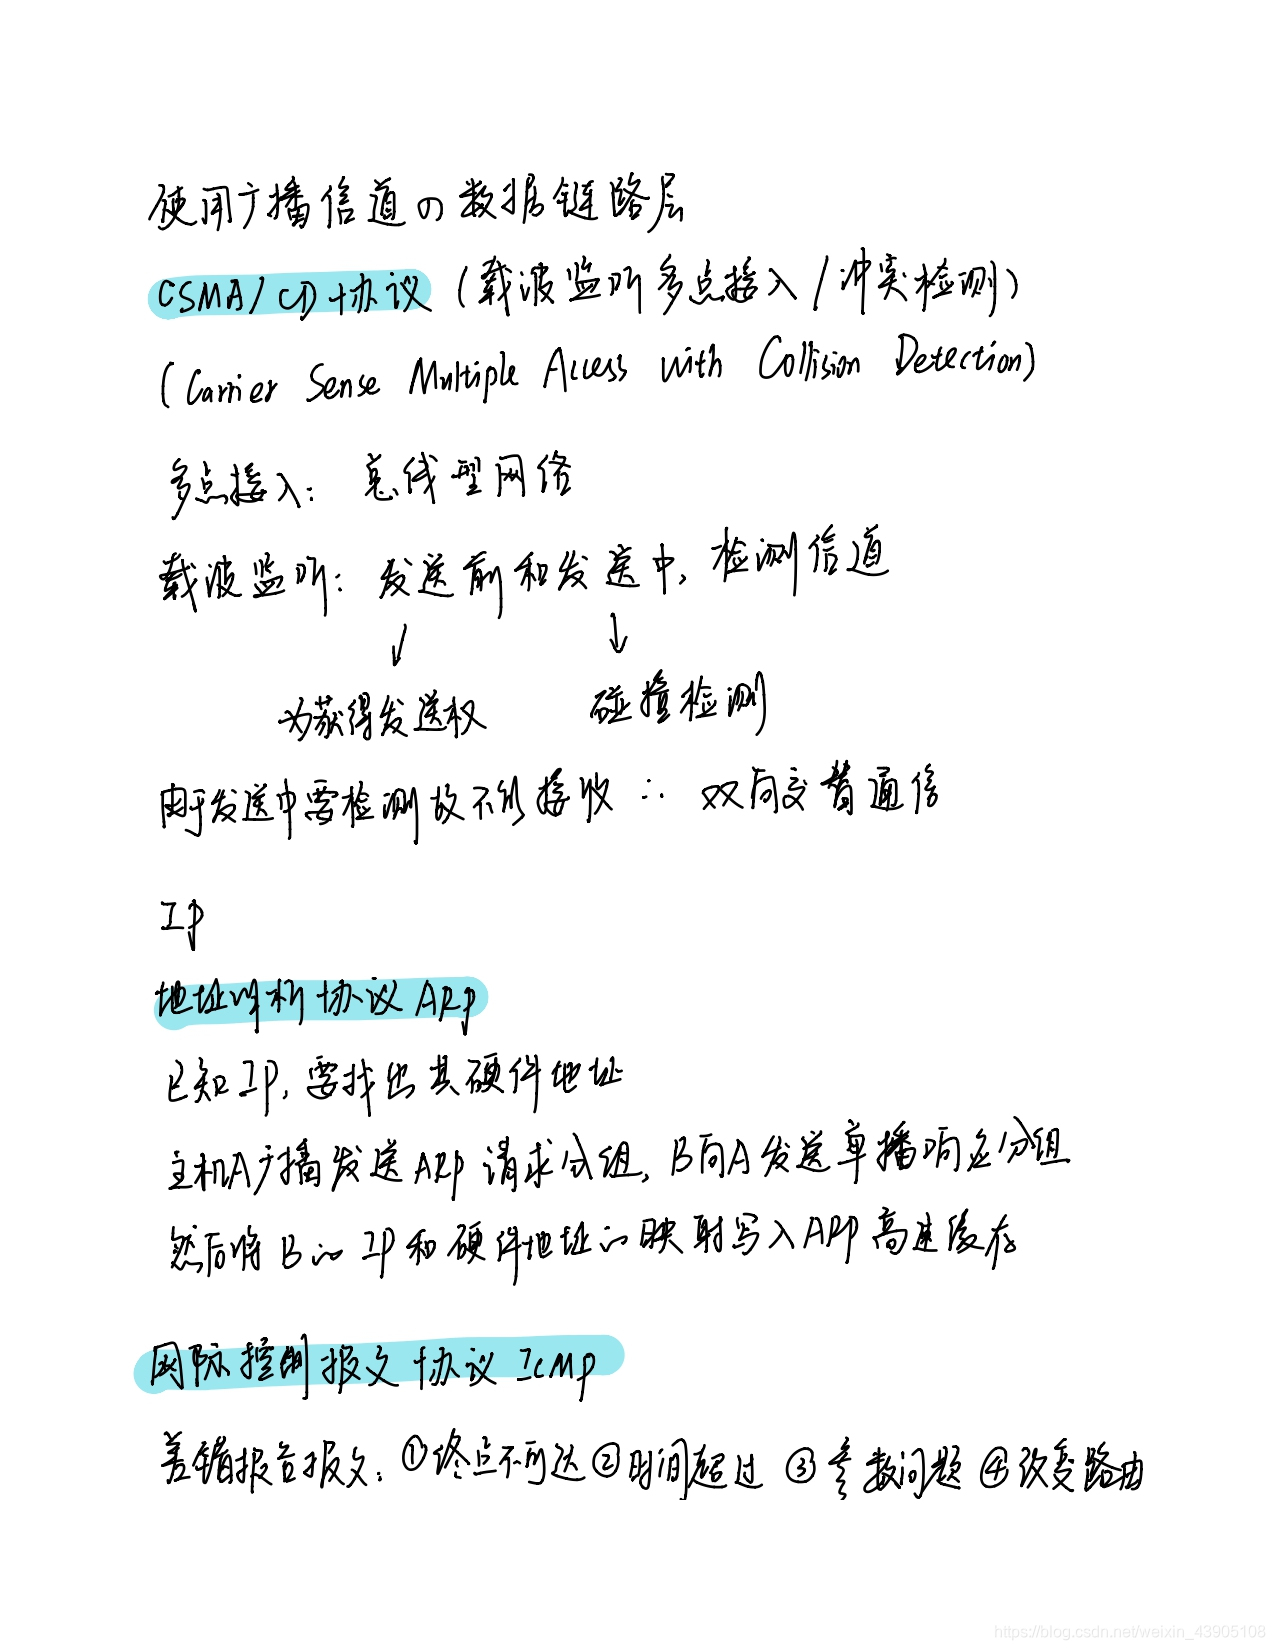 使用广播信道の数据链路层
CSMA/CD协议（载波监听多点接入/冲突检测）
(Carrier Sense Multiple Access with Collision Detection)
多点接入：总线型网络
载波监听：发送前和发送中，检测信道
↓ ↓
为获得发送权 碰撞检测
由于发送中需检测故不能接收 ∴ 双向交替通信
IP
地址解析协议ARP
已知IP，要找出其硬件地址
主机A广播发送ARP请求分组，B向A发送单播响应分组
然后将B的IP和硬件地址的映射写入ARP高速缓存
网际控制报文协议ICMP
差错报告报文：①终点不可达②时间超过③参数问题④改变路由
https://blog.csdn.net/weixin_43905108